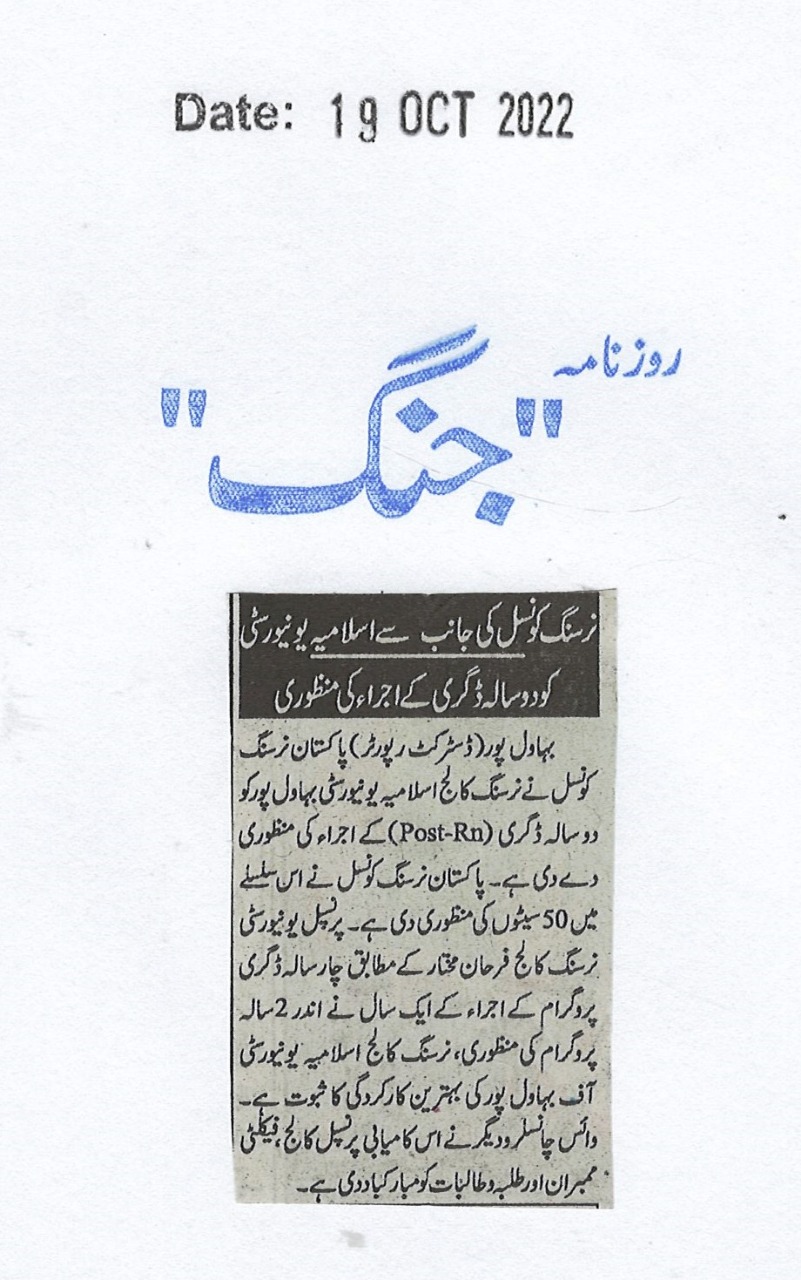 Date: 19 OCT 2022
روزنامہ
"جنگ"
نرسنگ کونسل کی جانب سے اسلامیہ یونیورسٹی
کو دو سالہ ڈگری کے اجراء کی منظوری
بہاول پور (ڈسٹرکٹ رپورٹر) پاکستان نرسنگ
کونسل نے نرسنگ کالج اسلامیہ یونیورسٹی بہاول پور کو
دو سالہ ڈگری (Post-Rn) کے اجراء کی منظوری
دے دی ہے۔ پاکستان نرسنگ کونسل نے اس سلسلے
میں 50 سیٹوں کی منظوری دی ہے۔ پرنسپل یونیورسٹی
نرسنگ کالج فرحان مختار کے مطابق چار سالہ ڈگری
پروگرام کے اجراء کے ایک سال نے اندر 2 سالہ
پروگرام کی منظوری، نرسنگ کالج اسلامیہ یونیورسٹی
آف بہاول پور کی بہترین کارکردگی کا ثبوت ہے۔
وائس چانسلر ودیگر نے اس کامیابی پرنسپل کالج، فیکلٹی
ممبران اور طلبہ وطالبات کو مبارکباد دی ہے۔